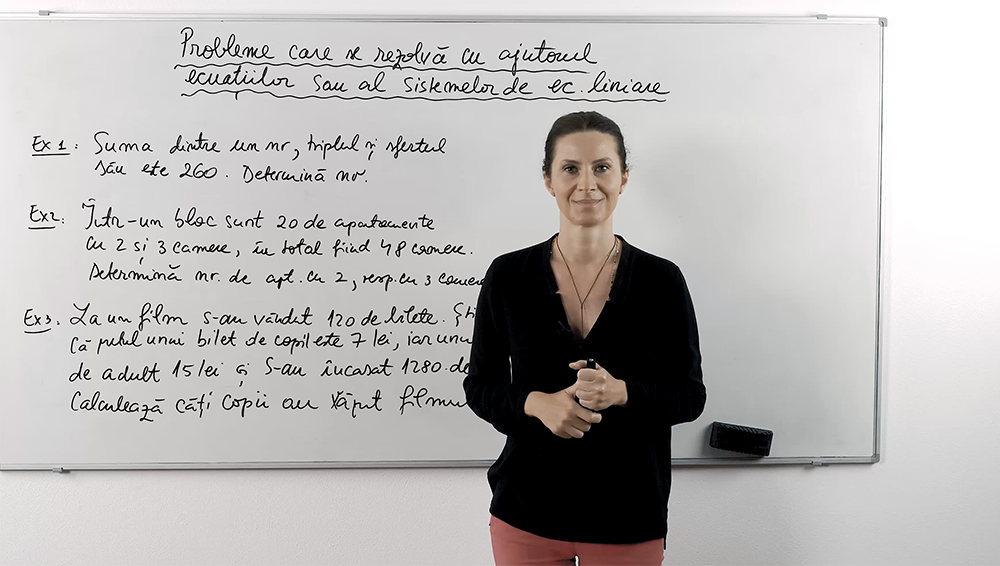 Probleme care se rezolvă cu ajutorul
ecuațiilor sau al sistemelor de ec. liniare
Ex 1: Suma dintre un nr, triplul și sfertul
său este 260. Determină nr.
Ex2: Într-un bloc sunt 20 de apartamente
cu 2 și 3 camere, în total fiind 48 camere.
Determină nr. de apt. cu 2, resp. cu 3 camere
Ex3: La un film s-au vândut 120 de bilete. Ști
că prețul unui bilet de copil este 7 lei, iar unu
de adult 15 lei și s-au încasat 1280 de
Calculează câți copii au văzut filmu